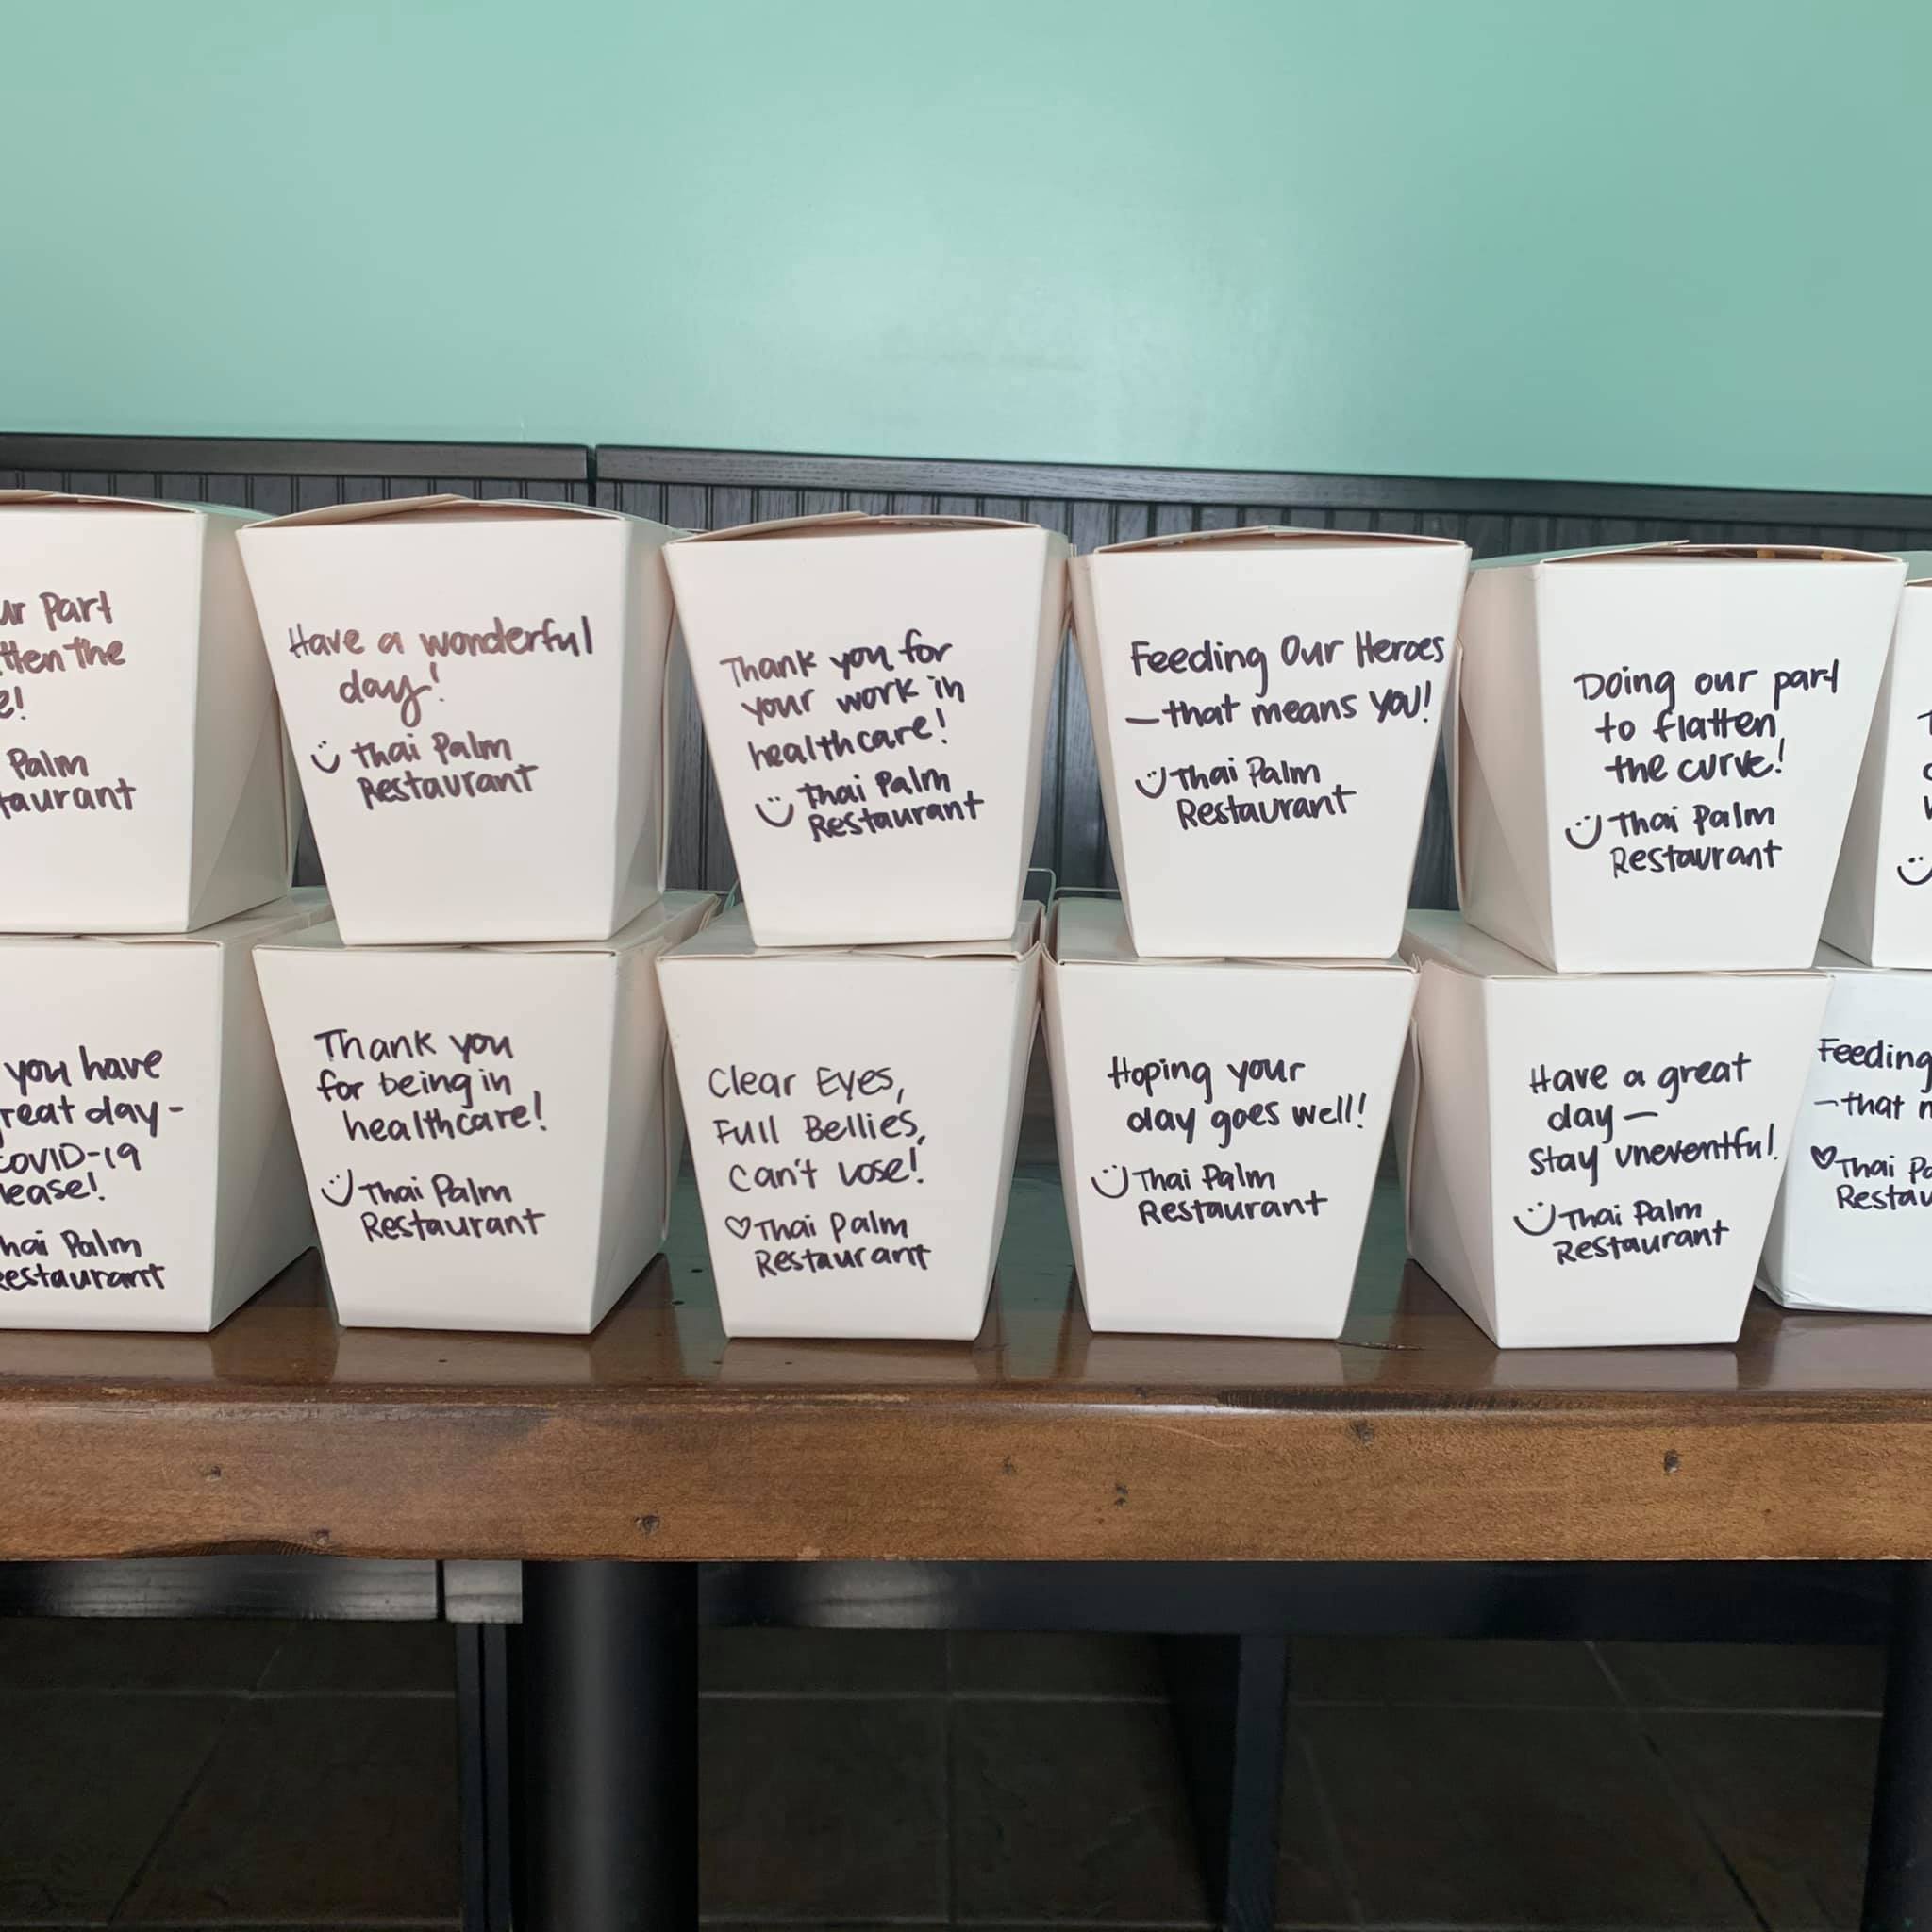 Part
the
Palm
Have a wonderful
day!
Thai Palm
Restaurant
Thank you for
your work in
healthcare!
Thai Palm
Restaurant
Feeding Our Heroes
—that means YOU!
Thai Palm
Restaurant
Doing our part
to flatten
the curve!
Thai Palm
Restaurant
you have
day-
COVID-19
Palm
Thank you
for being in
healthcare!
Thai Palm
Restaurant
Clear Eyes,
Full Bellies,
Can't Lose!
♡Thai Palm
Restaurant
Hoping your
day goes well!
Thai Palm
Restaurant
Have a great
day—
Stay uneventful!
Thai Palm
Restaurant
Feeding
—that
♡Thai